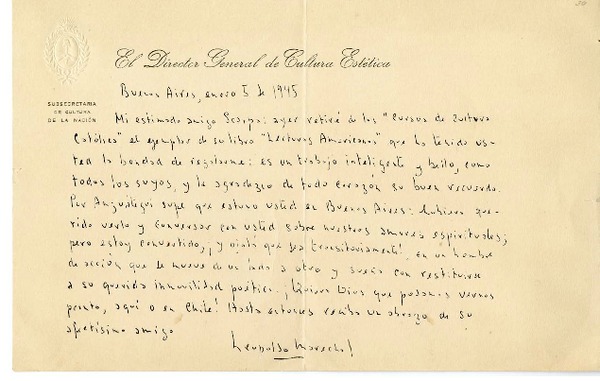 El Director General de Cultura Estética
SUBSECRETARIA
DE CULTURA
DE LA NACIÓN
Buenos Aires, enero 5 de 1945
Mi estimado amigo Scarpa: ayer retiré de los "Cursos de Cultura
Católica" el ejemplar de su libro "Lecturas Americanas" que ha tenido us-
ted la bondad de regalarme: es un trabajo inteligente y bello, como
todos los suyos, y le agradezco de todo corazón su buen recuerdo.
Por Anzoátegui supe que estuvo usted en Buenos Aires: hubiera que-
rido verlo y conversar con usted sobre nuestros amores espirituales;
pero estoy convertido, ¡y ojalá que sea transitoriamente! en un hombre
de acción que se mueve de un lado a otro y sueña con restituirse
a su querida inmovilidad poética. ¡Quiera Dios que podamos vernos
pronto, aquí o en Chile! Hasta entonces reciba un abrazo de su
afectísimo amigo
Leopoldo Marechal